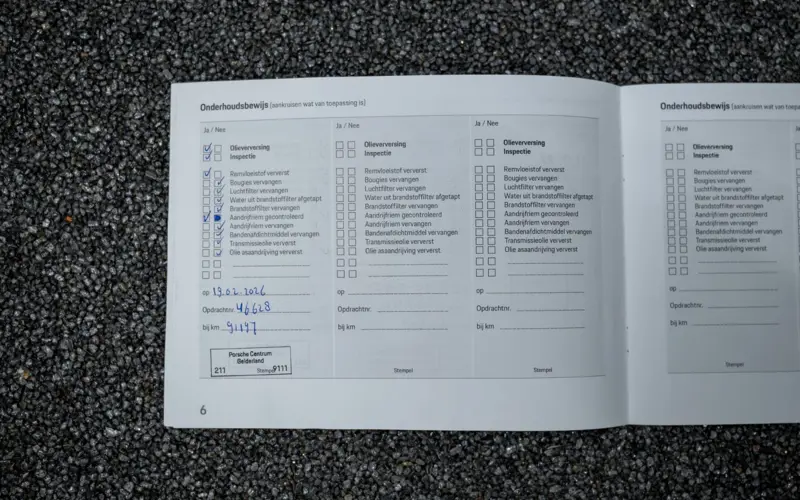 Onderhoudsbewijs (aankruisen wat van toepassing is)
Ja / Nee
Olieverversing
Inspectie
Remvloeistof ververst
Bougies vervangen
Luchtfilter vervangen
Water uit brandstoffilter afgetapt
Brandstoffilter vervangen
Aandrijfriem gecontroleerd
Aandrijfriem vervangen
Bandenafdichtmiddel vervangen
Transmissieolie ververst
Olie asaandrijving ververst
op 19.02.2026
Opdrachtnr. 46628
bij km 91197
Porsche Centrum
Gelderland
211 Stempel 9111
6
Ja / Nee
Olieverversing
Inspectie
Remvloeistof ververst
Bougies vervangen
Luchtfilter vervangen
Water uit brandstoffilter afgetapt
Brandstoffilter vervangen
Aandrijfriem gecontroleerd
Aandrijfriem vervangen
Bandenafdichtmiddel vervangen
Transmissieolie ververst
Olie asaandrijving ververst
op
Opdrachtnr.
bij km
Stempel
Ja / Nee
Olieverversing
Inspectie
Remvloeistof ververst
Bougies vervangen
Luchtfilter vervangen
Water uit brandstoffilter afgetapt
Brandstoffilter vervangen
Aandrijfriem gecontroleerd
Aandrijfriem vervangen
Bandenafdichtmiddel vervangen
Transmissieolie ververst
Olie asaandrijving ververst
op
Opdrachtnr.
bij km
Stempel
Onderhoudsbewijs (aankruisen wat van toepa
Ja / Nee
Olieverversing
Inspectie
Remvloeistof ververst
Bougies vervangen
Luchtfilter vervangen
Water uit brandstoffilter afgetapt
Brandstoffilter vervangen
Aandrijfriem gecontroleerd
Aandrijfriem vervangen
Bandenafdichtmiddel vervangen
Transmissieolie ververst
Olie asaandrijving ververst
op
Opdrachtnr.
bij km
Stempel